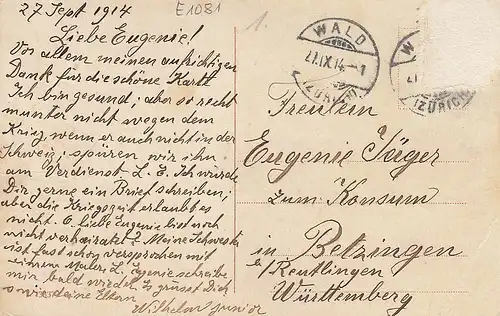 27 Sept 1914
E1081
1.
Liebe Eugenie!
Vor allem meinen aufrichtigen
Dank für die schöne Karte
Ich bin gesund; aber so recht
munter nicht wegen dem
Krieg, wenn er auch nicht in der
Schweiz; spüren wir ihn
am Verdienst L. E. Ich wurde
Dir gerne ein Brief schreiben;
aber die Kriegszeit erlaubt es
nicht. O. liebe Eugenie bist noch
nicht verheiratet? Meine Schwester
ist fast schon versprochen mit
einem Maler L. Eugenie schreibe
mir bald wieder. Es grüsst Dich
sowie deine Eltern
Wilhelm Junior
WALD
27.IX.14.-1
(ZÜRICH)
W
(ZÜRICH)
Freulein
Eugenie Jäger
zum Konsum
in Betzingen
b/ Reutlingen
Württemberg